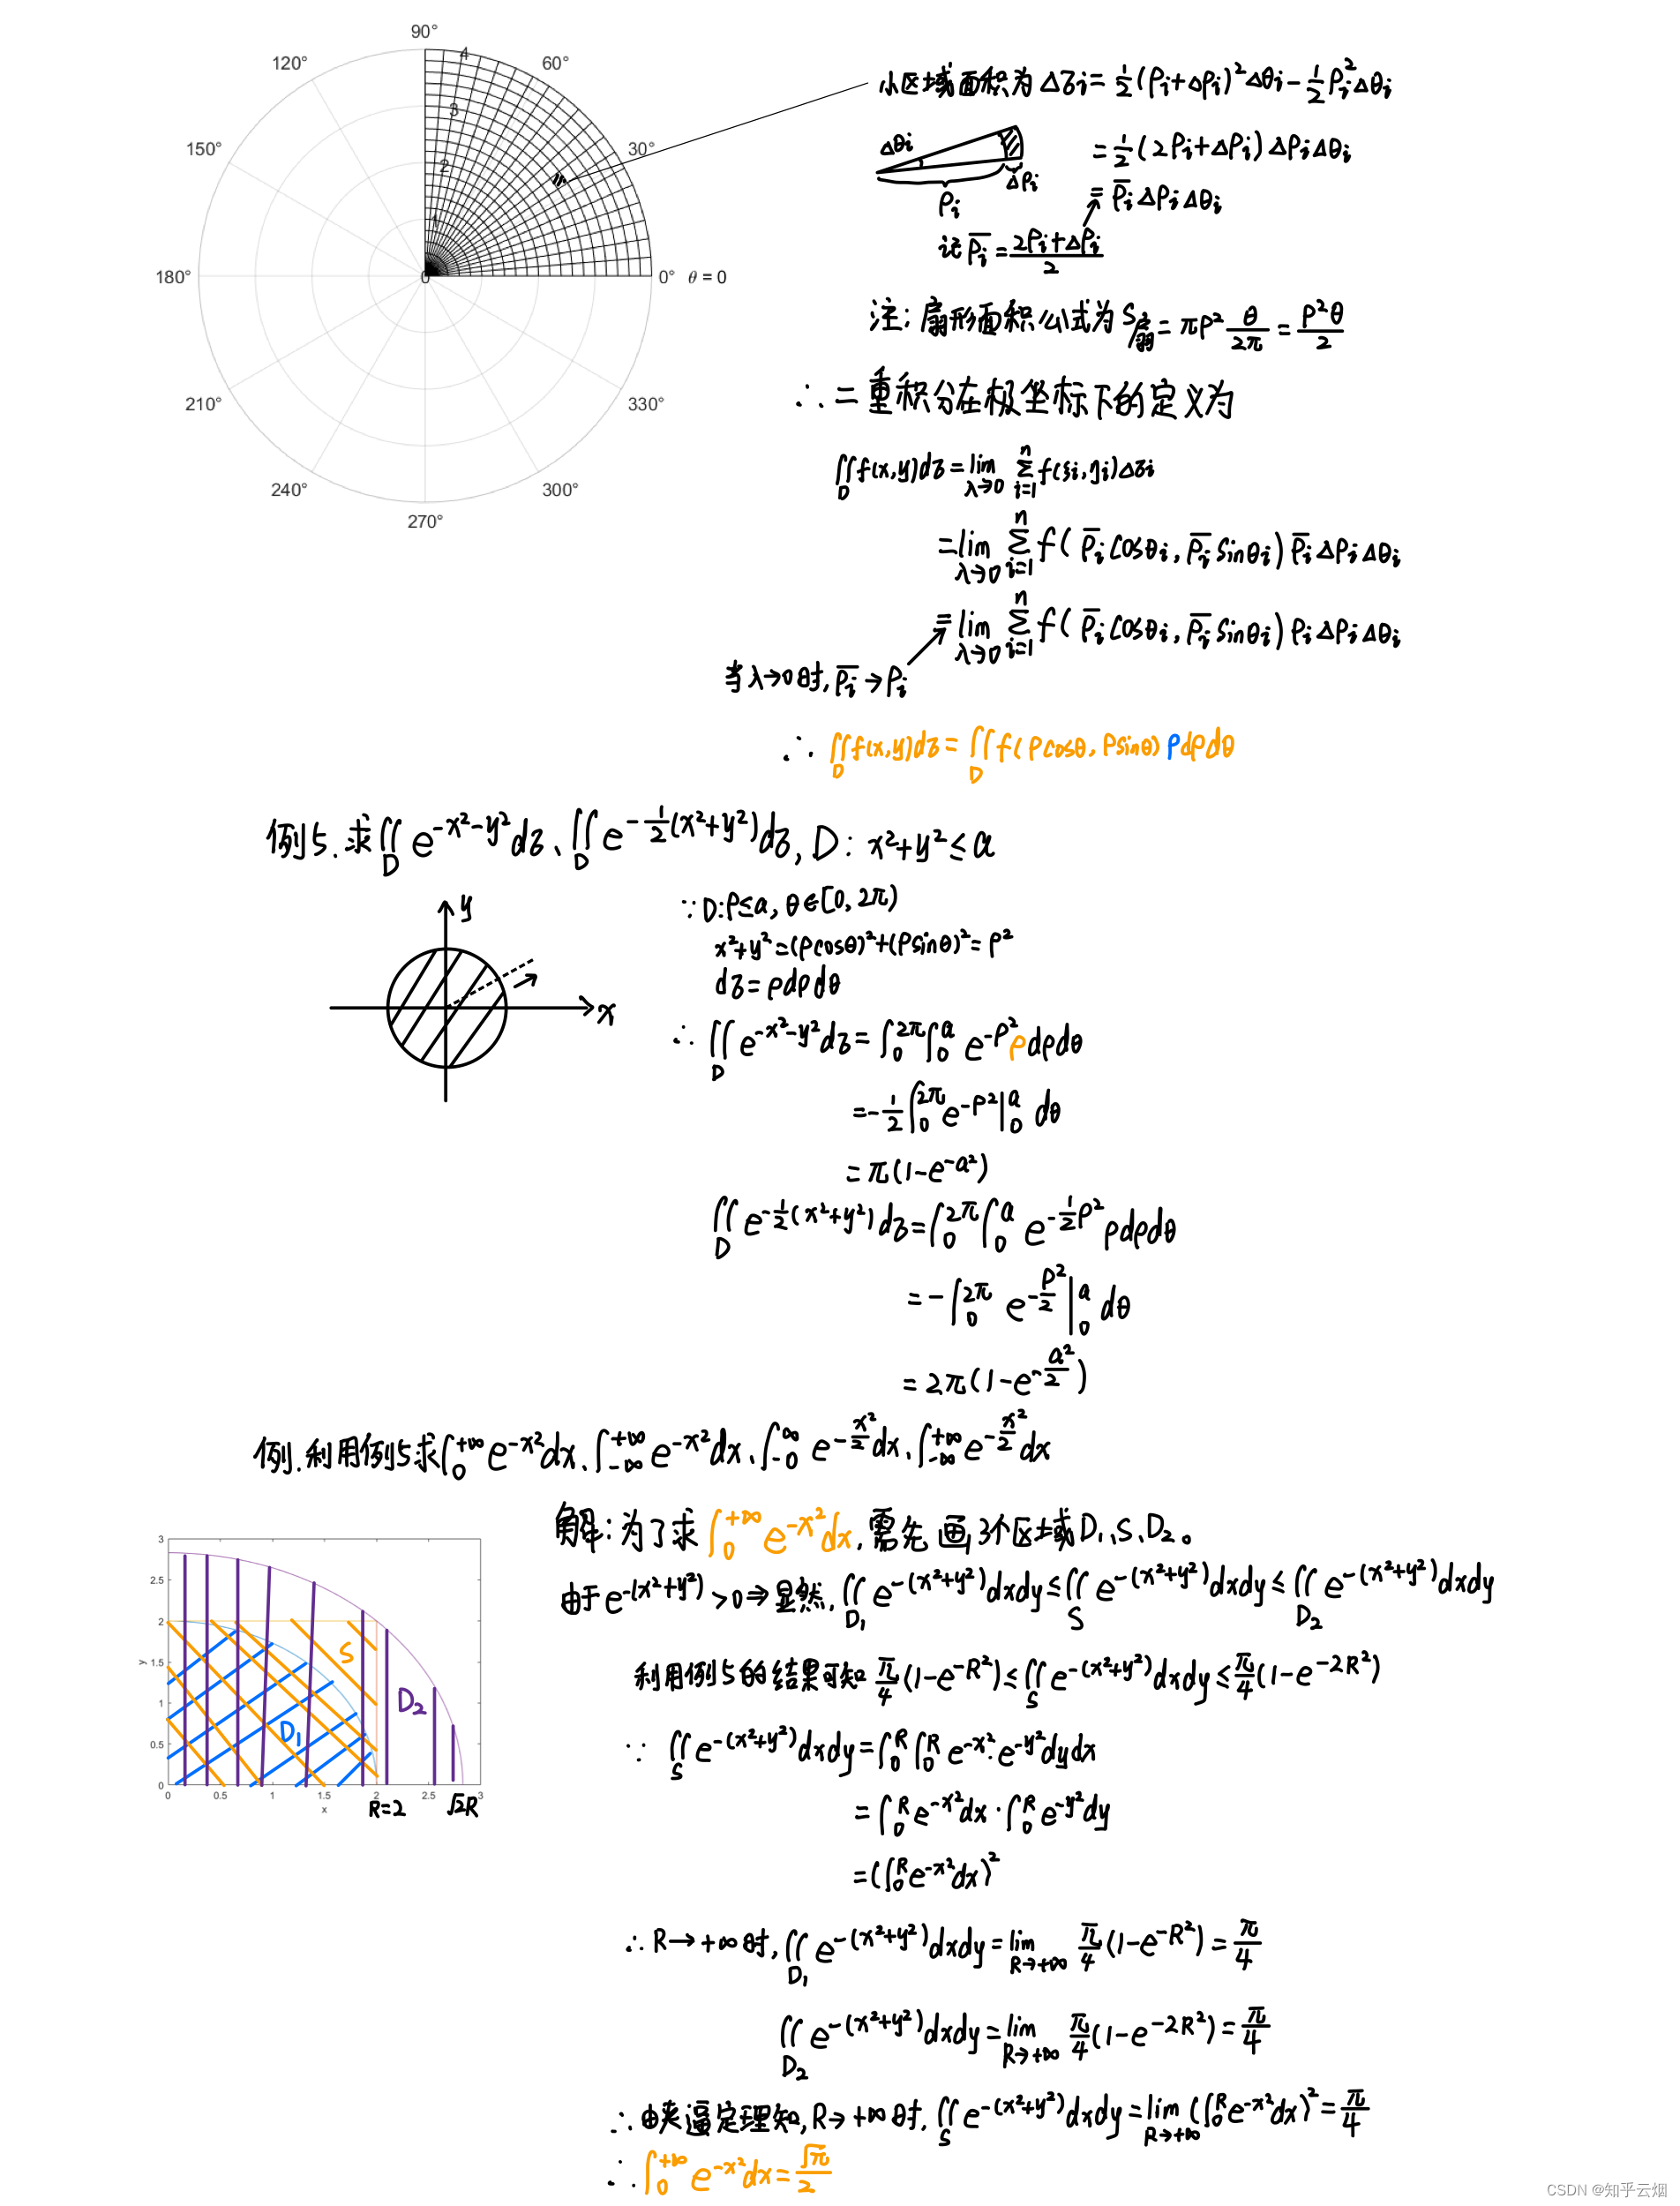 90°
120°
60°
150°
30°
180°
0° θ = 0
210°
330°
240°
300°
270°
4
3
2
1
0
小区域面积为Δσi=½(ρi+Δρi)²Δθi-½ρi²Δθi
Δθi
Δρi
ρi
=½(2ρi+Δρi)ΔρiΔθi
=ρ̄iΔρiΔθi
记ρ̄i=(2ρi+Δρi)/2
注:扇形面积公式为S扇=πρ²θ/2π=ρ²θ/2
∴二重积分在极坐标下的定义为
∬_D f(x,y)dσ=lim_{λ→0} Σ_{i=1}^n f(ξi,ηi)Δσi
=lim_{λ→0} Σ_{i=1}^n f(ρ̄i cosθi, ρ̄i sinθi)ρ̄iΔρiΔθi
=lim_{λ→0} Σ_{i=1}^n f(ρ̄i cosθi, ρ̄i sinθi)ρiΔρiΔθi
当λ→0时,ρ̄i→ρi
∴∬_D f(x,y)dσ=∬_D f(ρcosθ, ρsinθ)ρdρdθ
例5.求∬_D e^{-x²-y²}dσ、∬_D e^{-½(x²+y²)}dσ, D: x²+y²≤a
y
x
∵D:ρ≤a, θ∈[0, 2π)
x²+y²=(ρcosθ)²+(ρsinθ)²=ρ²
dσ=ρdρdθ
∴∬_D e^{-x²-y²}dσ=∫_0^{2π}∫_0^a e^{-ρ²}ρdρdθ
=-½∫_0^{2π}e^{-ρ²}|_0^a dθ
=π(1-e^{-a²})
∬_D e^{-½(x²+y²)}dσ=∫_0^{2π}∫_0^a e^{-½ρ²}ρdρdθ
=-∫_0^{2π} e^{-ρ²/2}|_0^a dθ
=2π(1-e^{-a²/2})
例.利用例5求∫_0^{+∞}e^{-x²}dx、∫_{-∞}^{+∞}e^{-x²}dx、∫_{-0}^{∞}e^{-x²/2}dx、∫_{-∞}^{+∞}e^{-x²/2}dx
解:为了求∫_0^{+∞}e^{-x²}dx,需先画3个区域D₁、S、D₂。
由于e^{-(x²+y²)}>0⇒显然,∬_{D₁}e^{-(x²+y²)}dxdy≤∬_S e^{-(x²+y²)}dxdy≤∬_{D₂}e^{-(x²+y²)}dxdy
利用例5的结果可知π/4(1-e^{-R²})≤∬_S e^{-(x²+y²)}dxdy≤π/4(1-e^{-2R²})
3
2.5
2
1.5
1
0.5
0
y
S
D₁
D₂
0 0.5 1 1.5 2 2.5 3
x
R=2
√2R
∵∬_S e^{-(x²+y²)}dxdy=∫_0^R∫_0^R e^{-x²}·e^{-y²}dydx
=∫_0^R e^{-x²}dx·∫_0^R e^{-y²}dy
=(∫_0^R e^{-x²}dx)²
∴R→+∞时,∬_{D₁}e^{-(x²+y²)}dxdy=lim_{R→+∞} π/4(1-e^{-R²})=π/4
∬_{D₂}e^{-(x²+y²)}dxdy=lim_{R→+∞} π/4(1-e^{-2R²})=π/4
∴由夹逼定理知,R→+∞时,∬_S e^{-(x²+y²)}dxdy=lim_{R→+∞}(∫_0^R e^{-x²}dx)²=π/4
∴∫_0^{+∞}e^{-x²}dx=√π/2
CSDN @知乎云烟